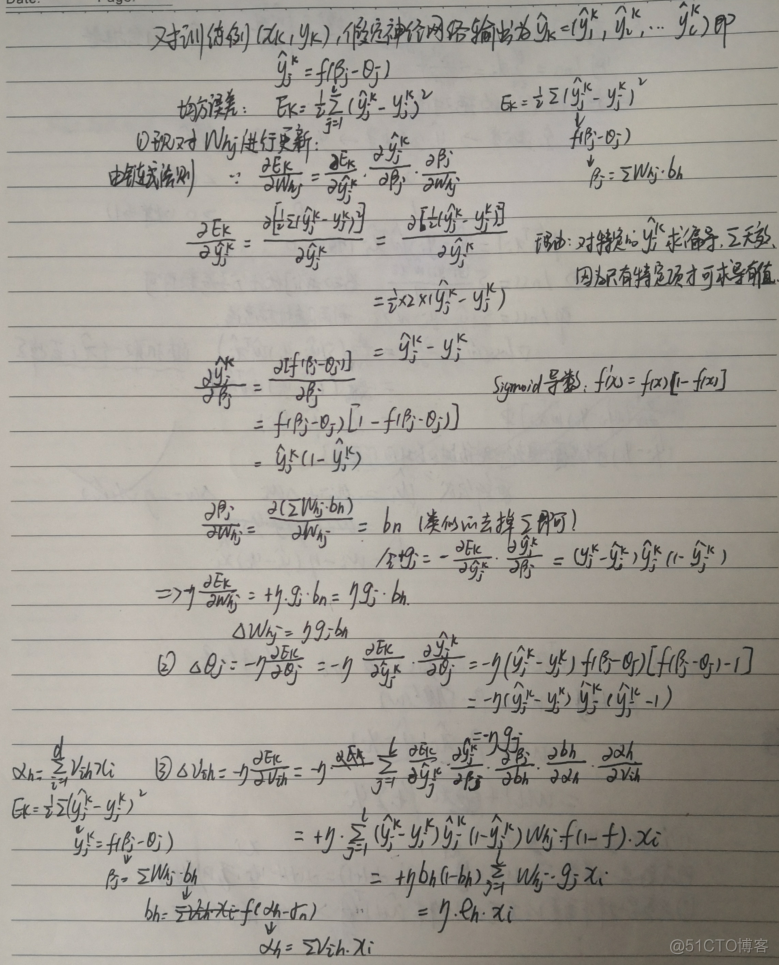 Date: Page:
对训练例(xk, yk), 假定神经网络输出为ŷk=(ŷ₁ᵏ, ŷ₂ᵏ, ... ŷₗᵏ)即
ŷⱼᵏ = f(βⱼ-θⱼ)
均方误差: Ek = ½ Σⱼ₌₁ˡ (ŷⱼᵏ - yⱼᵏ)² Ek = ½ Σ(ŷⱼᵏ - yⱼᵏ)²
①现对Whj进行更新: ↓ f(βⱼ-θⱼ)
由链式法则 ∵ ∂Ek/∂Whj = ∂Ek/∂ŷⱼᵏ · ∂ŷⱼᵏ/∂βⱼ · ∂βⱼ/∂Whj ↓ βⱼ = ΣWhj·bh
∂Ek/∂ŷⱼᵏ = ∂[½Σ(ŷⱼᵏ - yⱼᵏ)²]/∂ŷⱼᵏ = ∂[½(ŷⱼᵏ - yⱼᵏ)]/∂ŷⱼᵏ 理由: 对特定的ŷⱼᵏ求偏导, Σ无效,
因为只有特定项才可求导有值.
= ½×2×(ŷⱼᵏ - yⱼᵏ)
= ŷⱼᵏ - yⱼᵏ
∂ŷⱼᵏ/∂βⱼ = ∂[f(βⱼ-θⱼ)]/∂βⱼ Sigmoid导数: f'(x) = f(x)[1-f(x)]
= f(βⱼ-θⱼ)[1-f(βⱼ-θⱼ)]
= ŷⱼᵏ(1-ŷⱼᵏ)
∂βⱼ/∂Whj = ∂(ΣWhj·bh)/∂Whj = bh (类似的去掉Σ即可)
令gⱼ = -∂Ek/∂ŷⱼᵏ · ∂ŷⱼᵏ/∂βⱼ = (yⱼᵏ-ŷⱼᵏ)ŷⱼᵏ(1-ŷⱼᵏ)
=>-η ∂Ek/∂Whj = +η·gⱼ·bh = ηgⱼ·bh.
ΔWhj = ηgⱼbh
② Δθⱼ = -η ∂Ek/∂θⱼ = -η ∂Ek/∂ŷⱼᵏ · ∂ŷⱼᵏ/∂θⱼ = -η(ŷⱼᵏ-yⱼᵏ)f(βⱼ-θⱼ)[f(βⱼ-θⱼ)-1]
= -η(ŷⱼᵏ-yⱼᵏ)ŷⱼᵏ(ŷⱼᵏ-1)
= -ηgⱼ
αh = Σᵢ₌₁ᵈ Vihxi ③ ΔVih = -η ∂Ek/∂Vih = -η Σⱼ₌₁ˡ ∂Ek/∂ŷⱼᵏ · ∂ŷⱼᵏ/∂βⱼ · ∂βⱼ/∂bh · ∂bh/∂αh · ∂αh/∂Vih
Ek = ½Σ(ŷⱼᵏ-yⱼᵏ)²
↓ ŷⱼᵏ = f(βⱼ-θⱼ) = +η·Σⱼ₌₁ˡ (ŷⱼᵏ-yⱼᵏ)ŷⱼᵏ(1-ŷⱼᵏ)Whj·f(1-f)·xi
↓ βⱼ = ΣWhj·bh = +ηbh(1-bh) Σⱼ₌₁ˡ Whj·gⱼxi
↓ bh = f(αh-γh) = η·eh·xi
↓ αh = ΣVih·xi
@51CTO博客